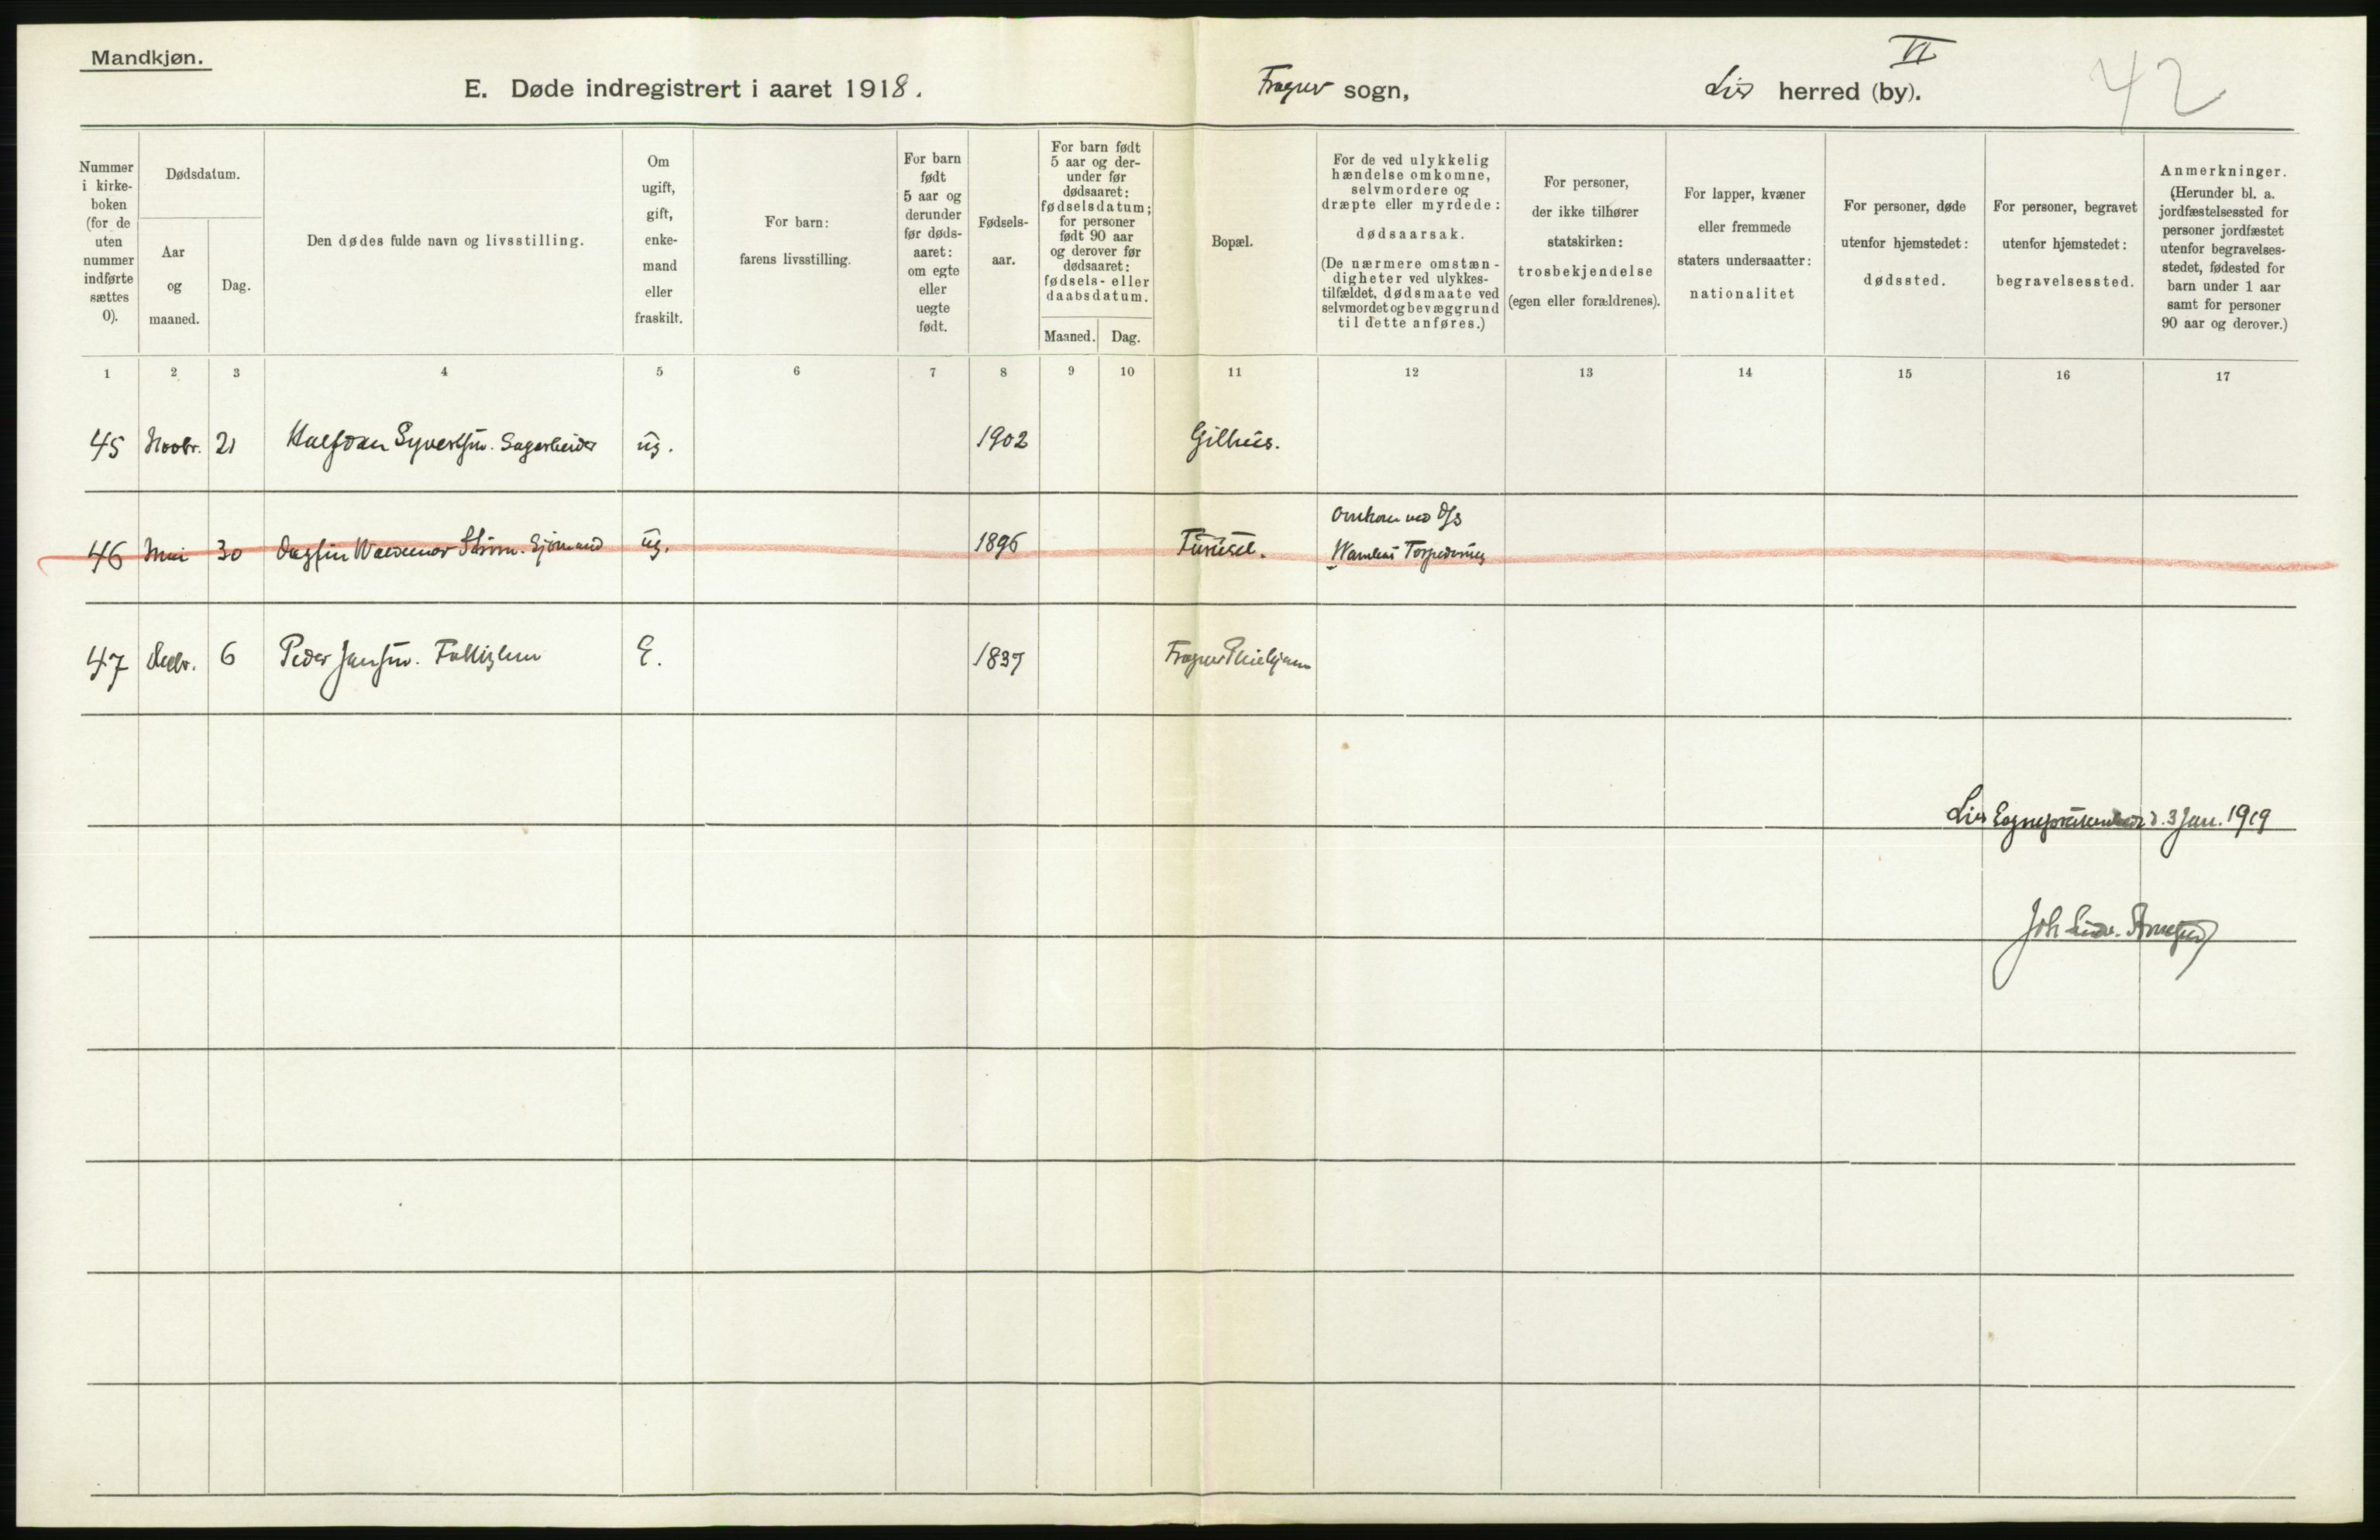 Mandkjøn.
VI
42
E. Døde indregistrert i aaret 1918.
Frogner sogn,
Lier herred (by).
Nummer
i kirke-
boken
(for de
uten
nummer
indførte
sættes
0).
Dødsdatum.
Aar
og
maaned.
Dag.
Den dødes fulde navn og livsstilling.
Om
ugift,
gift,
enke-
mand
eller
fraskilt.
For barn:
farens livsstilling.
For barn
født
5 aar og
derunder
før døds-
aaret:
om egte
eller
uegte
født.
Fødsels-
aar.
For barn født
5 aar og der-
under før
dødsaaret:
fødselsdatum;
for personer
født 90 aar
og derover før
dødsaaret:
fødsels- eller
daabsdatum.
Maaned. Dag.
Bopæl.
For de ved ulykkelig
hændelse omkomne,
selvmordere og
dræpte eller myrdede:
dødsaarsak.
(De nærmere omstæn-
digheter ved ulykkes-
tilfældet, dødsmaate ved
selvmordet og bevæggrund
til dette anføres.)
For personer,
der ikke tilhører
statskirken:
trosbekjendelse
(egen eller forældrenes).
For lapper, kvæner
eller fremmede
staters undersaatter:
nationalitet
For personer, døde
utenfor hjemstedet:
dødssted.
For personer, begravet
utenfor hjemstedet:
begravelsessted.
Anmerkninger.
(Herunder bl. a.
jordfæstelsessted for
personer jordfæstet
utenfor begravelses-
stedet, fødested for
barn under 1 aar
samt for personer
90 aar og derover.)
1 2 3 4 5 6 7 8 9 10 11 12 13 14 15 16 17
45 Novbr. 21 Halfdan Syvertsen. Sagarbeider ug. 1902 Gilhus.
Omkom ved D/S
46 Mai 30 Dagfin Waldemar Strøm. Sjømand ug. 1896 Furuset. Torpedering
47 Decbr. 6 Peder Jensen. Fattiglem E. 1837 Frogner Pleiehjem
Lier Sogneprestembede d. 3 Jan. 1919
Joh